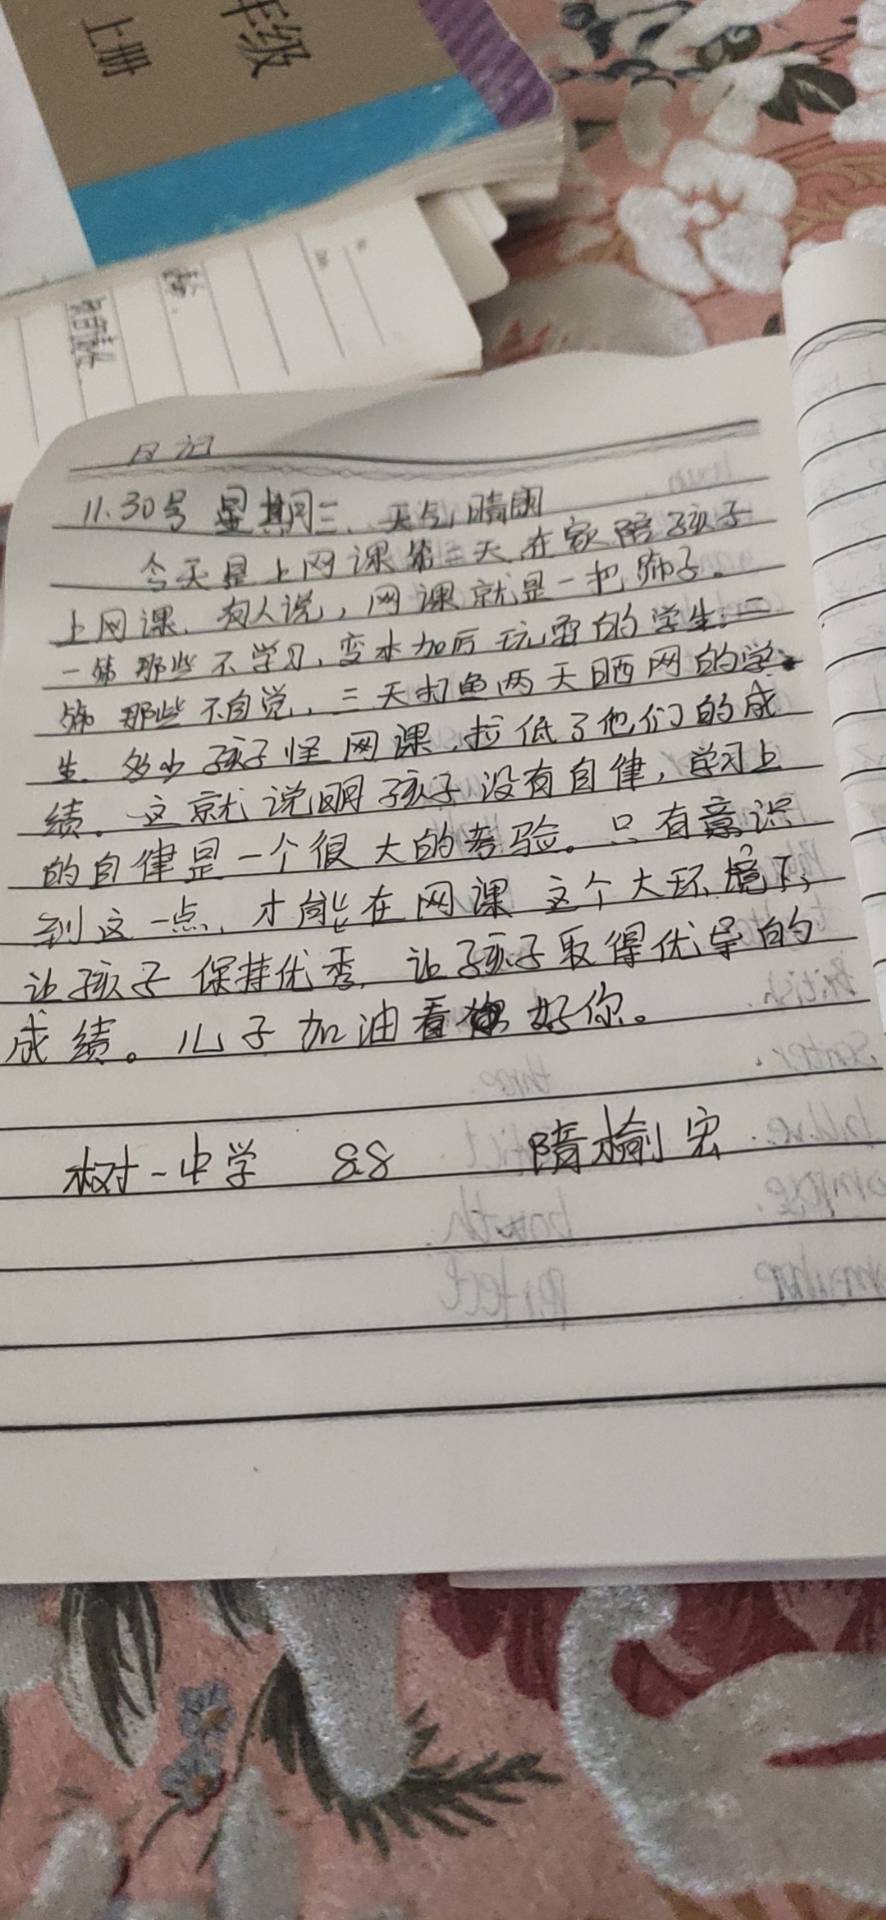 年级
上册
日记
11.30号 星期三、天气,晴雨
今天是上网课第三天在家陪孩子
上网课、有人说,网课就是一把筛子。
一筛那些不学习、变本加厉玩耍的学生;二
筛那些不自觉、三天打鱼两天晒网的学
生、多少孩子怪网课,拉低了他们的成
绩。这就说明孩子没有自律,学习上
的自律是一个很大的考验。只有意识
到这一点、才能在网课这个大环境下,
让孩子保持优秀、让孩子取得优异的
成绩。儿子加油看好你。
树一中学 88 隋榆宏